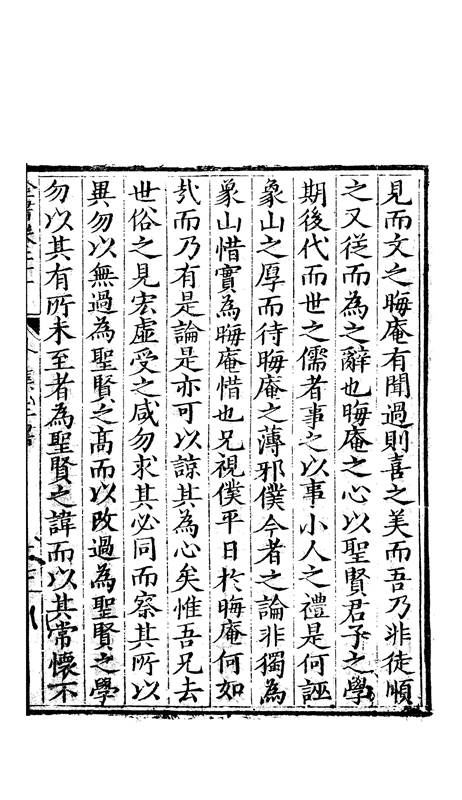 見而文之晦庵有聞過則喜之美而吾乃非徒順
之又從而為之辭也晦庵之心以聖賢君子之學
期後代而世之儒者事之以事小人之禮是何誣
象山之厚而待晦庵之薄邪僕今者之論非獨為
象山惜實為晦庵惜也兄視僕平日於晦庵何如
㢤而乃有是論是亦可以諒其為心矣惟吾兄去
世俗之見宏虛受之咸勿求其必同而察其所以
異勿以無過為聖賢之髙而以改過為聖賢之學
勿以其有所未至者為聖賢之諱而以其常懷不